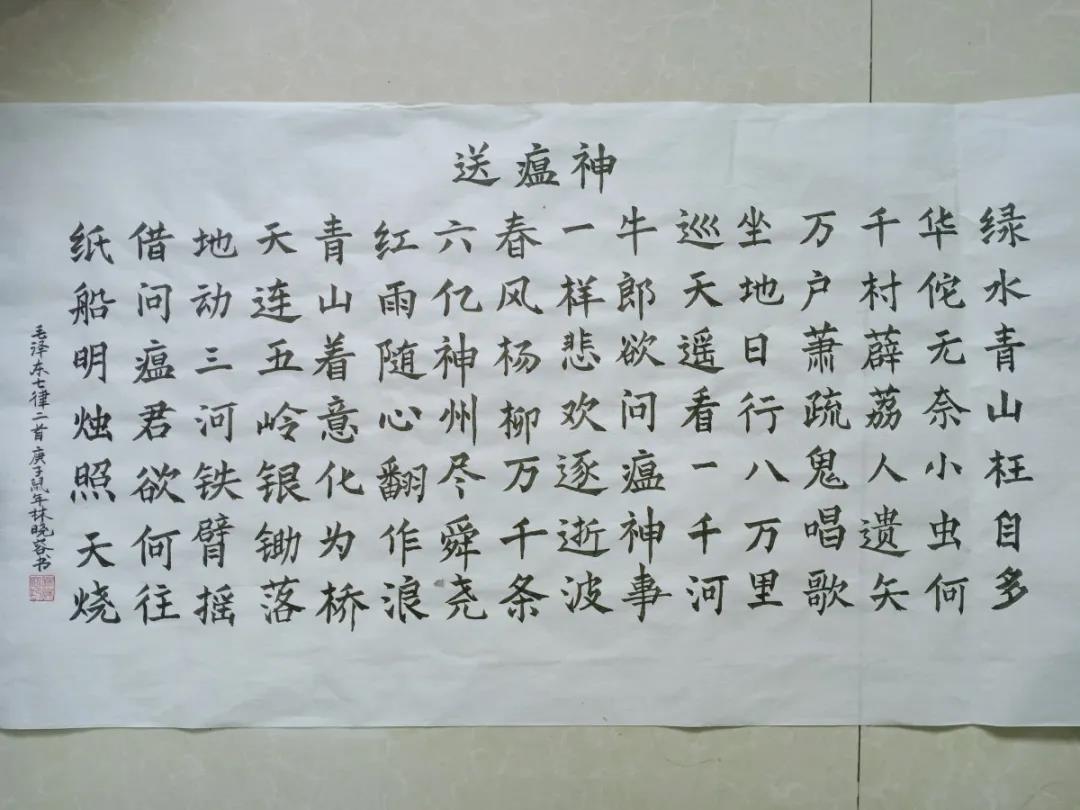 送瘟神
绿水青山枉自多
华佗无奈小虫何
千村薜荔人遗矢
万户萧疏鬼唱歌
坐地日行八万里
巡天遥看一千河
牛郎欲问瘟神事
一样悲欢逐逝波
春风杨柳万千条
六亿神州尽舜尧
红雨随心翻作浪
青山着意化为桥
天连五岭银锄落
地动三河铁臂摇
借问瘟君欲何往
纸船明烛照天烧
毛泽东七律二首庚子鼠年林晓蓉书